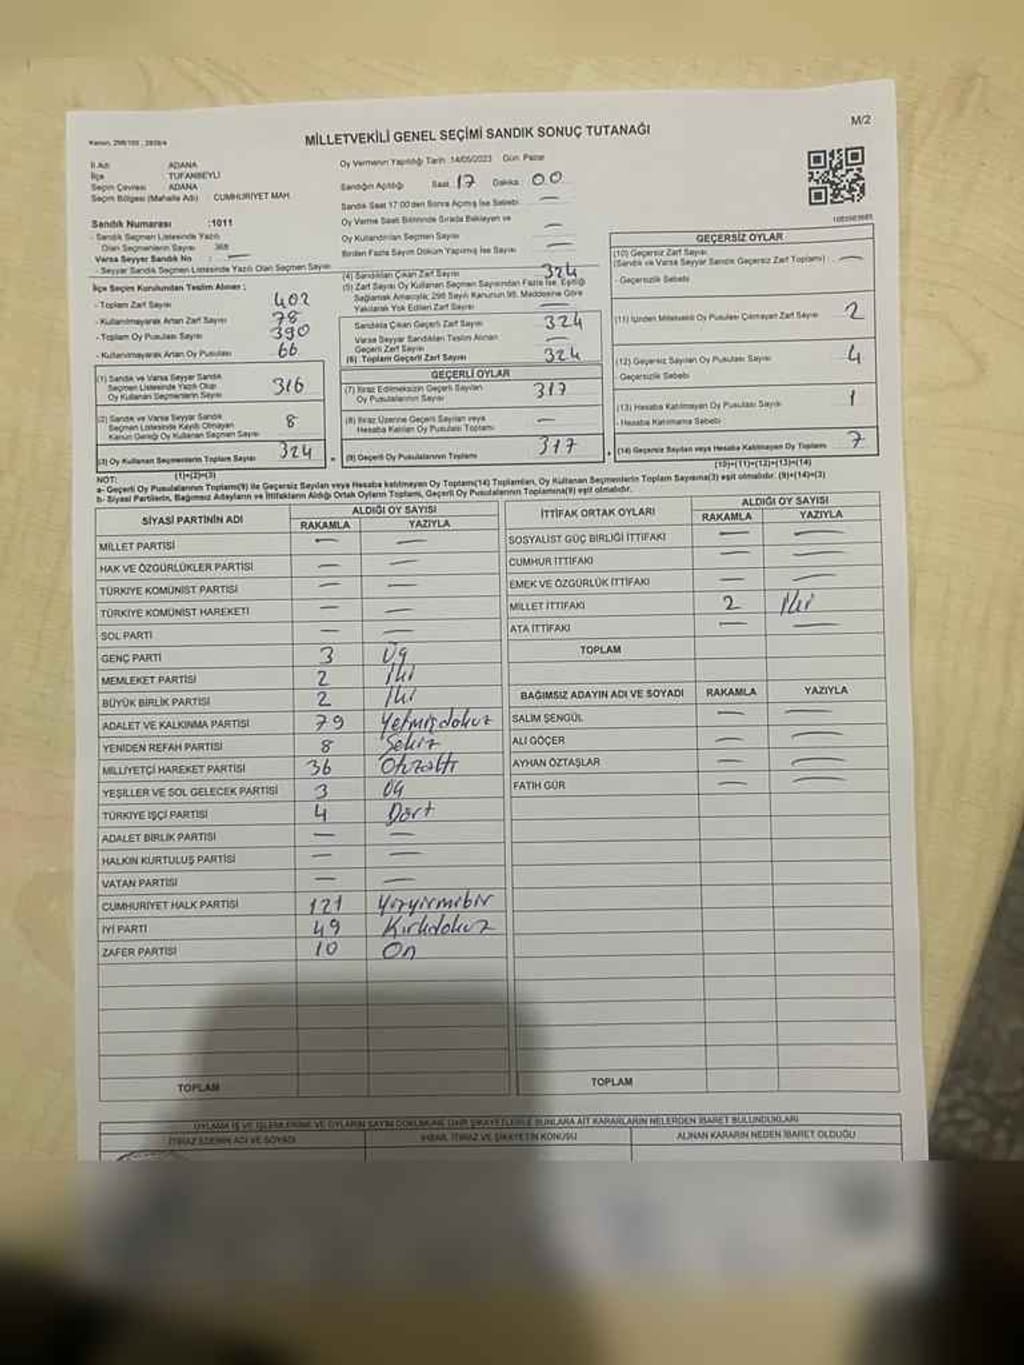 M/2
MİLLETVEKİLİ GENEL SEÇİMİ SANDIK SONUÇ TUTANAĞI
İl Adı ADANA
İlçe TUFANBEYLİ
Seçim Çevresi ADANA
Seçim Bölgesi (Mahalle Adı) CUMHURİYET MAH.
Sandık Numarası :1011
- Sandık Seçmen Listesinde Yazılı
Olan Seçmenlerin Sayısı 368
Varsa Seyyar Sandık No : —
- Seyyar Sandık Seçmen Listesinde Yazılı Olan Seçmen Sayısı
İlçe Seçim Kurulundan Teslim Alınan ;
- Toplam Zarf Sayısı 402
- Kullanılmayarak Artan Zarf Sayısı 78
- Toplam Oy Pusulası Sayısı 390
- Kullanılmayarak Artan Oy Pusulası 66
(1) Sandık ve Varsa Seyyar Sandık
Seçmen Listesinde Yazılı Olup
Oy Kullanan Seçmenlerin Sayısı 316
(2) Sandık ve Varsa Seyyar Sandık
Seçmen Listesinde Kayıtlı Olmayan
Kanun Gereği Oy Kullanan Seçmen Sayısı 8
(3) Oy Kullanan Seçmenlerin Toplam Sayısı 324
(1)+(2)=(3)
Oy Vermenin Yapıldığı Tarih :14/05/2023 Gün: Pazar
Sandığın Açıldığı Saat: 17 Dakika: 00
Sandık Saat 17:00'den Sonra Açılmış İse Sebebi —
Oy Verme Saati Bitiminde Sırada Bekleyen ve
Oy Kullandırılan Seçmen Sayısı —
Birden Fazla Sayım Döküm Yapılmış İse Sayısı —
(4) Sandıktan Çıkan Zarf Sayısı 324
(5) Zarf Sayısı Oy Kullanan Seçmen Sayısından Fazla İse, Eşitliği
Sağlamak Amacıyla; 298 Sayılı Kanunun 98. Maddesine Göre
Yakılarak Yok Edilen Zarf Sayısı —
Sandıkta Çıkan Geçerli Zarf Sayısı 324
Varsa Seyyar Sandıktan Teslim Alınan
Geçerli Zarf Sayısı —
(6) Toplam Geçerli Zarf Sayısı 324
GEÇERLİ OYLAR
(7) İtiraz Edilmeksizin Geçerli Sayılan
Oy Pusulalarının Sayısı 317
(8) İtiraz Üzerine Geçerli Sayılan veya
Hesaba Katılan Oy Pusulası Toplamı —
(9) Geçerli Oy Pusulalarının Toplamı 317
GEÇERSİZ OYLAR
(10) Geçersiz Zarf Sayısı
(Sandık ve Varsa Seyyar Sandık Geçersiz Zarf Toplamı) —
- Geçersizlik Sebebi
(11) İçinden Milletvekili Oy Pusulası Çıkmayan Zarf Sayısı 2
(12) Geçersiz Sayılan Oy Pusulası Sayısı 4
- Geçersizlik Sebebi
(13) Hesaba Katılmayan Oy Pusulası Sayısı 1
- Hesaba Katılmama Sebebi
(14) Geçersiz Sayılan veya Hesaba Katılmayan Oy Toplamı 7
(10)+(11)+(12)+(13)=(14)
NOT:
a- Geçerli Oy Pusulalarının Toplamı(9) ile Geçersiz Sayılan veya Hesaba katılmayan Oy Toplamı(14) Toplamları, Oy Kullanan Seçmenlerin Toplam Sayısına(3) eşit olmalıdır. (9)+(14)=(3)
b- Siyasi Partilerin, Bağımsız Adayların ve İttifakların Aldığı Ortak Oyların Toplamı, Geçerli Oy Pusulalarının Toplamına(9) eşit olmalıdır.
SİYASİ PARTİNİN ADI ALDIĞI OY SAYISI
RAKAMLA YAZIYLA
MİLLET PARTİSİ — —
HAK VE ÖZGÜRLÜKLER PARTİSİ — —
TÜRKİYE KOMÜNİST PARTİSİ — —
TÜRKİYE KOMÜNİST HAREKETİ — —
SOL PARTİ — —
GENÇ PARTİ 3 Üç
MEMLEKET PARTİSİ 2 İki
BÜYÜK BİRLİK PARTİSİ 2 İki
ADALET VE KALKINMA PARTİSİ 79 Yetmişdokuz
YENİDEN REFAH PARTİSİ 8 Sekiz
MİLLİYETÇİ HAREKET PARTİSİ 36 Otuzaltı
YEŞİLLER VE SOL GELECEK PARTİSİ 3 Üç
TÜRKİYE İŞÇİ PARTİSİ 4 Dört
ADALET BİRLİK PARTİSİ — —
HALKIN KURTULUŞ PARTİSİ — —
VATAN PARTİSİ — —
CUMHURİYET HALK PARTİSİ 121 Yüzyirmibir
İYİ PARTİ 49 Kırkdokuz
ZAFER PARTİSİ 10 On
TOPLAM
İTTİFAK ORTAK OYLARI ALDIĞI OY SAYISI
RAKAMLA YAZIYLA
SOSYALİST GÜÇ BİRLİĞİ İTTİFAKI — —
CUMHUR İTTİFAKI — —
EMEK VE ÖZGÜRLÜK İTTİFAKI — —
MİLLET İTTİFAKI 2 İki
ATA İTTİFAKI — —
TOPLAM
BAĞIMSIZ ADAYIN ADI VE SOYADI RAKAMLA YAZIYLA
SALİM ŞENGÜL — —
ALİ GÖÇER — —
AYHAN ÖZTAŞLAR — —
FATİH GÜR — —
TOPLAM
OYLAMA İŞ VE İŞLEMLERİNE VE OYLARIN SAYIM DÖKÜMÜNE DAİR ŞİKAYETLERLE BUNLARA AİT KARARLARIN NELERDEN İBARET BULUNDUKLARI
İTİRAZ EDENİN ADI VE SOYADI İHBAR, İTİRAZ VE ŞİKAYETİN KONUSU ALINAN KARARIN NEDEN İBARET OLDUĞU